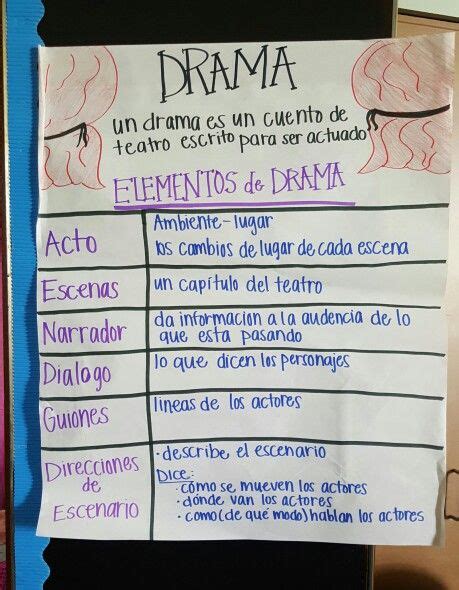 DRAMA
un drama es un cuento de
teatro escrito para ser actuado
ELEMENTOS de DRAMA
Acto
Ambiente-lugar
los cambios de lugar de cada escena
Escenas
un capítulo del teatro
Narrador
da informacion a la audencia de lo
que esta pasando
Dialogo
lo que dicen los personajes
Guiones
lineas de los actores
Direcciones
de
Escenario
·describe el escenario
DICE:
·cómo se mueven los actores
·dónde van los actores
·como(de qué modo)hablan los actores